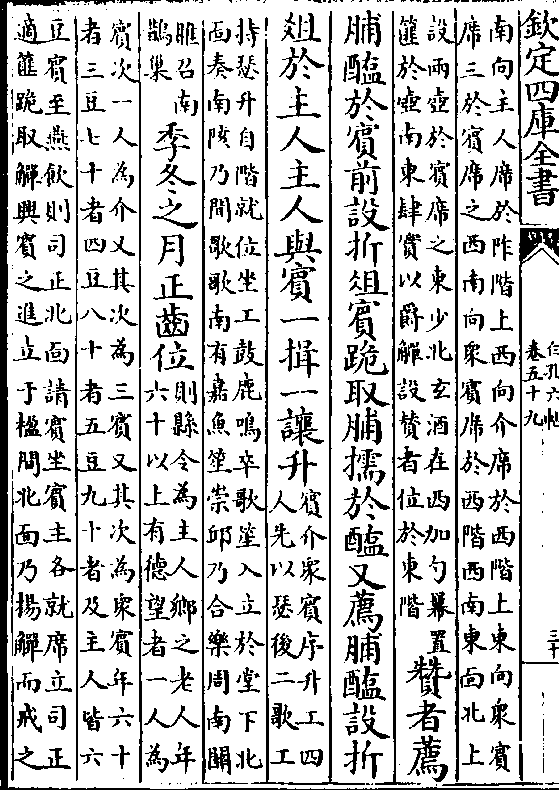 欽定四庫全書
白孔六帖
卷五十九
三十
南向主人席於阼階上西向介席於西階上東向衆賓
席三於賓席之西南向衆賓席於西階西南東面北上
設兩壺於賓席之東少北玄酒在西加勺羃置
篚於壺南東肆實以爵觶設贊者位於東階
贊者薦
脯醢於賓前設折俎賓跪取脯擩於醢又薦脯醢設折
俎於主人主人與賓一揖一讓升
賓介衆賓序升工四
人先以瑟後二歌工
持瑟升自階就位坐工鼓鹿鳴卒歌笙入立於堂下北
面奏南陔乃間歌歌南有嘉魚笙崇邱乃合樂周南關
雎召南
鵲巢
季冬之月正齒位
則縣令為主人鄉之老人年
六十以上有德望者一人為
賓次一人為介又其次為三賓又其次為衆賓年六十
者三豆七十者四豆八十者五豆九十者及主人皆六
豆賓至燕飲則司正北面請賓坐賓主各就席立司正
適篚跪取觶興實之進立于楹間北面乃揚觶而戒之